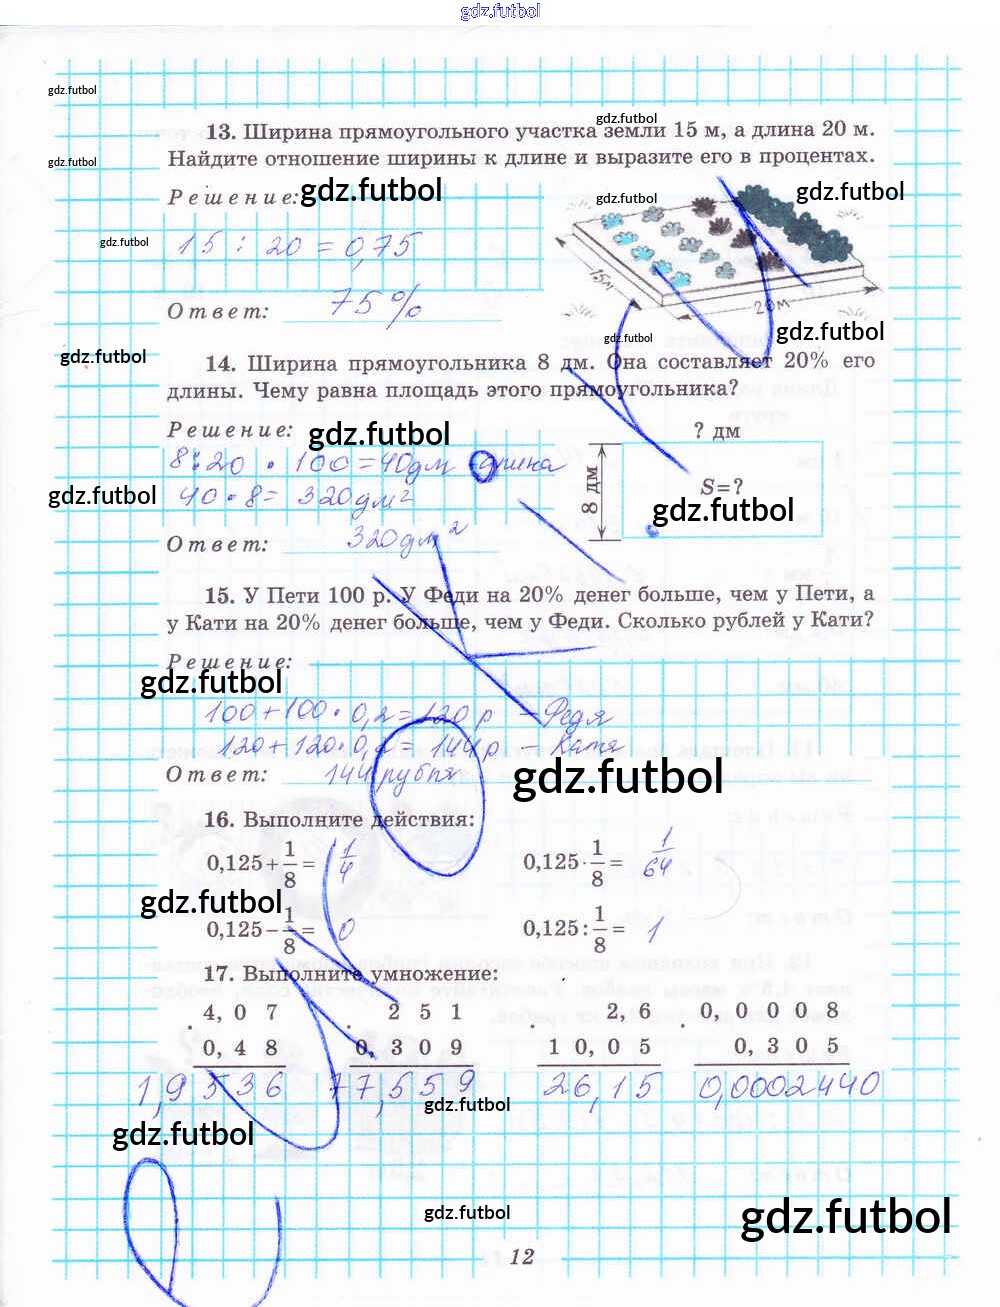 gdz.futbol
gdz.futbol
gdz.futbol
13. Ширина прямоугольного участка земли 15 м, а длина 20 м.
gdz.futbol
Найдите отношение ширины к длине и выразите его в процентах.
Решение:
gdz.futbol
gdz.futbol
gdz.futbol
gdz.futbol
15 : 20 = 0,75
15м
20м
Ответ: 75%
gdz.futbol
gdz.futbol
gdz.futbol
14. Ширина прямоугольника 8 дм. Она составляет 20% его
длины. Чему равна площадь этого прямоугольника?
Решение:
gdz.futbol
? дм
8 : 20 · 100 = 40дм - длина
8 дм
S=?
gdz.futbol
40 · 8 = 320дм²
gdz.futbol
Ответ: 320дм²
15. У Пети 100 р. У Феди на 20% денег больше, чем у Пети, а
у Кати на 20% денег больше, чем у Феди. Сколько рублей у Кати?
Решение:
gdz.futbol
100+100·0,2=120 р - Федя
120+120·0,2=144 р - Катя
Ответ: 144 рубля
gdz.futbol
16. Выполните действия:
0,125+1/8= 1/4
0,125·1/8= 1/64
gdz.futbol
0,125−1/8= 0
0,125:1/8= 1
17. Выполните умножение:
4,07 · 251 · 2,6 · 0,0008
0,48 0,309 10,05 0,305
1,9536 77,559 26,15 0,0002440
gdz.futbol
gdz.futbol
gdz.futbol
gdz.futbol
12